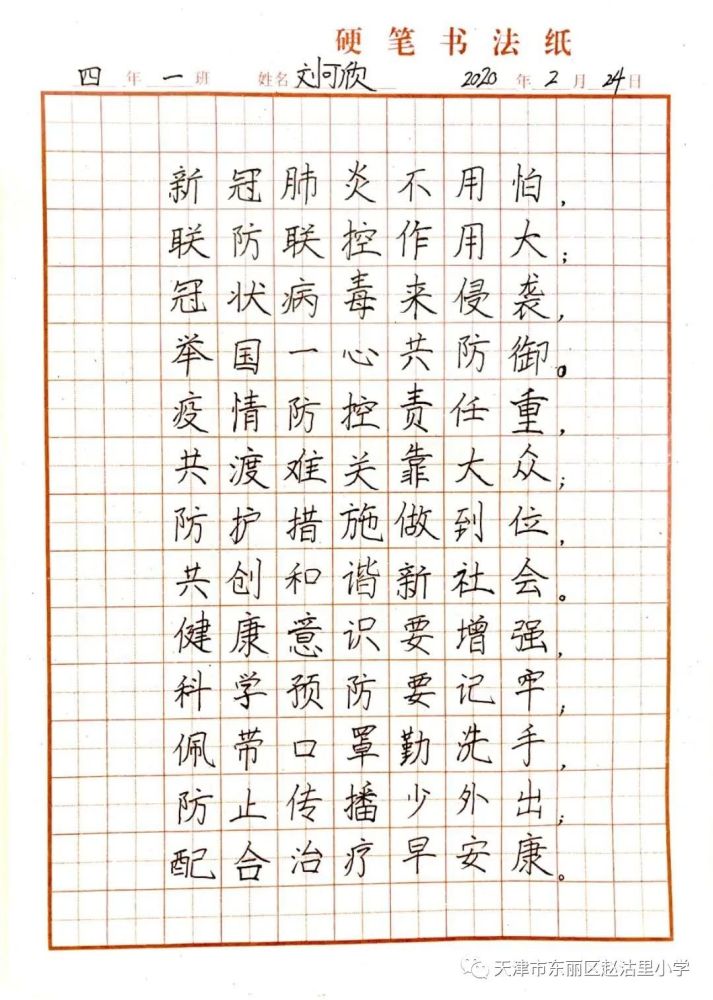 硬笔书法纸
四年一班 姓名 刘可欣 2020年2月24日
新冠肺炎不用怕，
联防联控作用大；
冠状病毒来侵袭，
举国一心共防御。
疫情防控责任重，
共渡难关靠大众；
防护措施做到位，
共创和谐新社会。
健康意识要增强，
科学预防要记牢；
佩带口罩勤洗手，
防止传播少外出；
配合治疗早安康。
天津市东丽区赵沽里小学